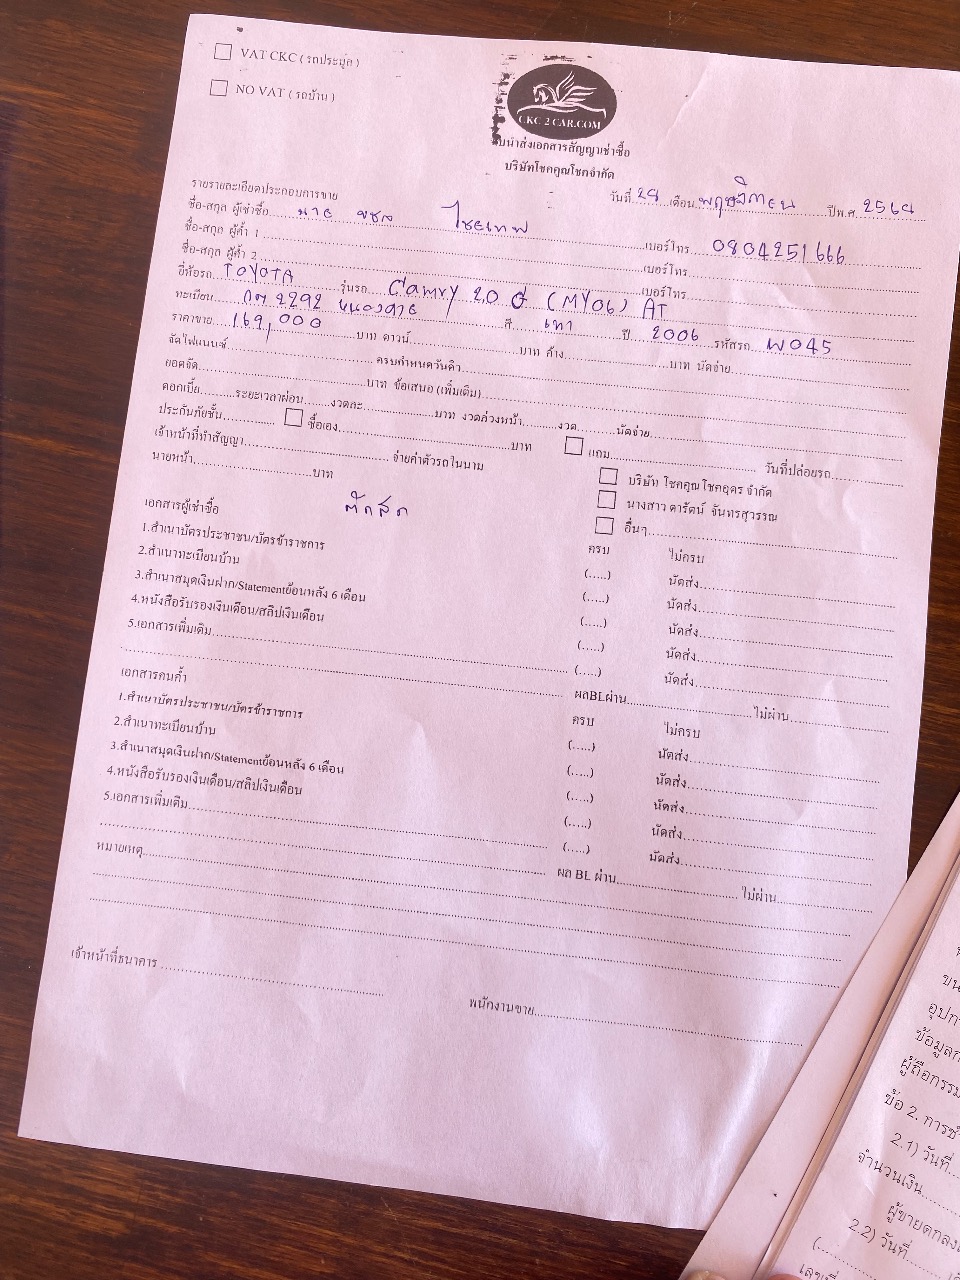 VAT CKC ( รถประมูล )
NO VAT ( รถบ้าน )
CKC 2 CAR.COM
ใบนำส่งเอกสารสัญญาเช่าซื้อ
บริษัทโชคคูณโชคจำกัด
วันที่ 28 เดือน พฤษจิกายน ปีพ.ศ. 2564
รายรายละเอียดประกอบการขาย
ชื่อ-สกุล ผู้เช่าซื้อ นาย ไชยเทพ เบอร์โทร 0804251666
ชื่อ-สกุล ผู้ค้ำ 1 เบอร์โทร
ชื่อ-สกุล ผู้ค้ำ 2 เบอร์โทร
ยี่ห้อรถ TOYOTA รุ่นรถ Camry 2.0 G (MY06) AT
ทะเบียน กต 2292 หนองคาย สี เทา ปี 2006 รหัสรถ W045
ราคาขาย 169,000 บาท ดาวน์ บาท ค้าง บาท นัดจ่าย
จัดไฟแนนซ์ ครบกำหนดวันคิว
ยอดจัด บาท ข้อเสนอ (เพิ่มเติม)
ดอกเบี้ย ระยะเวลาผ่อน งวดละ บาท งวดล่วงหน้า งวด นัดจ่าย
ประกันภัยชั้น ซื้อเอง บาท แถม วันที่ปล่อยรถ
เจ้าหน้าที่ทำสัญญา จ่ายค่าตัวรถในนาม บริษัท โชคคูณโชคอุดร จำกัด
นายหน้า บาท นางสาว ดารัตน์ จันทรสุวรรณ
อื่นๆ
เอกสารผู้เช่าซื้อ ตัดสด ครบ ไม่ครบ
1.สำเนาบัตรประชาชน/บัตรข้าราชการ (.....) นัดส่ง
2.สำเนาทะเบียนบ้าน (.....) นัดส่ง
3.สำเนาสมุดเงินฝาก/Statementย้อนหลัง 6 เดือน (.....) นัดส่ง
4.หนังสือรับรองเงินเดือน/สลิปเงินเดือน (.....) นัดส่ง
5.เอกสารเพิ่มเติม (.....) นัดส่ง
ผลBLผ่าน ไม่ผ่าน
เอกสารคนค้ำ ครบ ไม่ครบ
1.สำเนาบัตรประชาชน/บัตรข้าราชการ (.....) นัดส่ง
2.สำเนาทะเบียนบ้าน (.....) นัดส่ง
3.สำเนาสมุดเงินฝาก/Statementย้อนหลัง 6 เดือน (.....) นัดส่ง
4.หนังสือรับรองเงินเดือน/สลิปเงินเดือน (.....) นัดส่ง
5.เอกสารเพิ่มเติม (.....) นัดส่ง
ผล BL ผ่าน ไม่ผ่าน
หมายเหตุ
เจ้าหน้าที่ธนาคาร
พนักงานขาย
ข้อ 2. การชำ
2.1) วันที่
จำนวนเงิน
ผู้ขายตกลง
2.2) วันที่